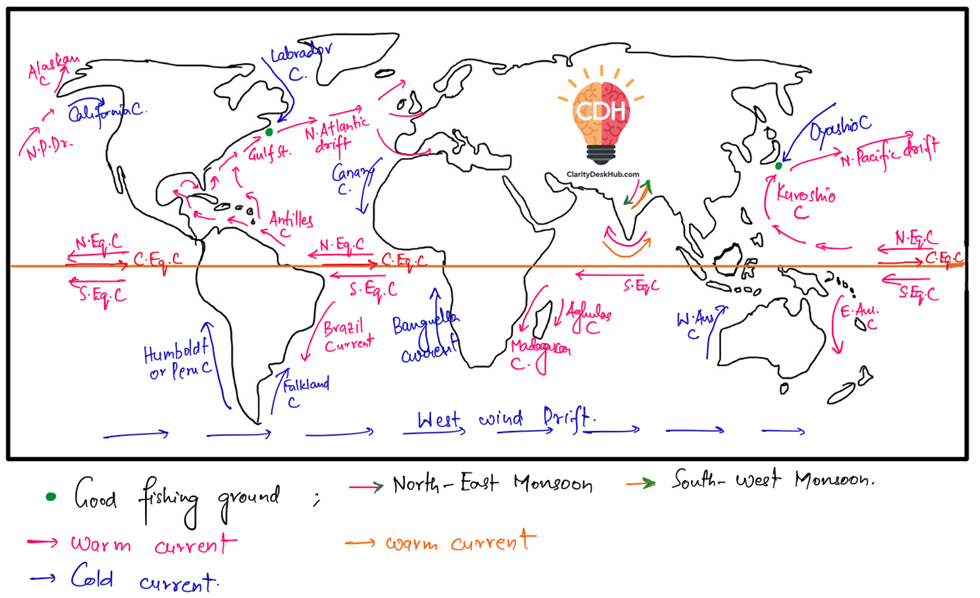 Alaskan
C
California C.
N.P.Dr.
Labrador
C.
Gulf St.
N.Atlantic
drift
Canary
C.
CDH
ClarityDeskHub.com
Oyashio C
N.Pacific drift
Kuroshio
C
Antilles
C
N.Eq.C
C.Eq.C
S.Eq.C
N.Eq.C
C.Eq.C
S.Eq.C
S.Eq.C
N.Eq.C
C.Eq.C
S.Eq.C
Humboldt
or Peru C
Brazil
Current
Falkland
C
Banguella
current
Aghulas
C
C.
W.Aus
C
E.Aus.
C
West wind Drift.
Good fishing ground ;
North-East Monsoon
South-West Monsoon.
warm current
warm current
Cold current.